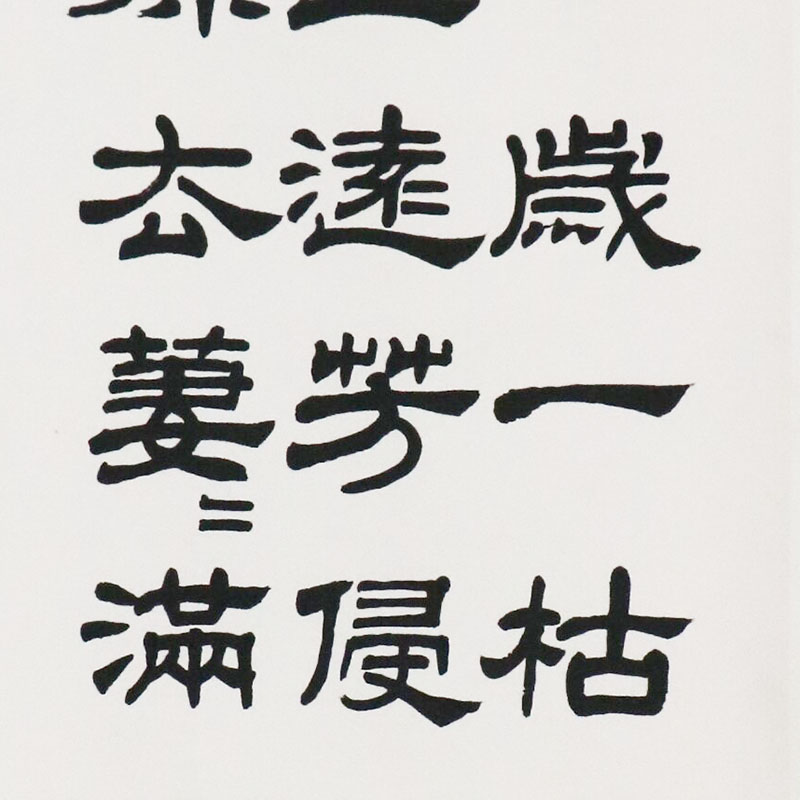 歲一枯
遠芳侵
去萋〻滿